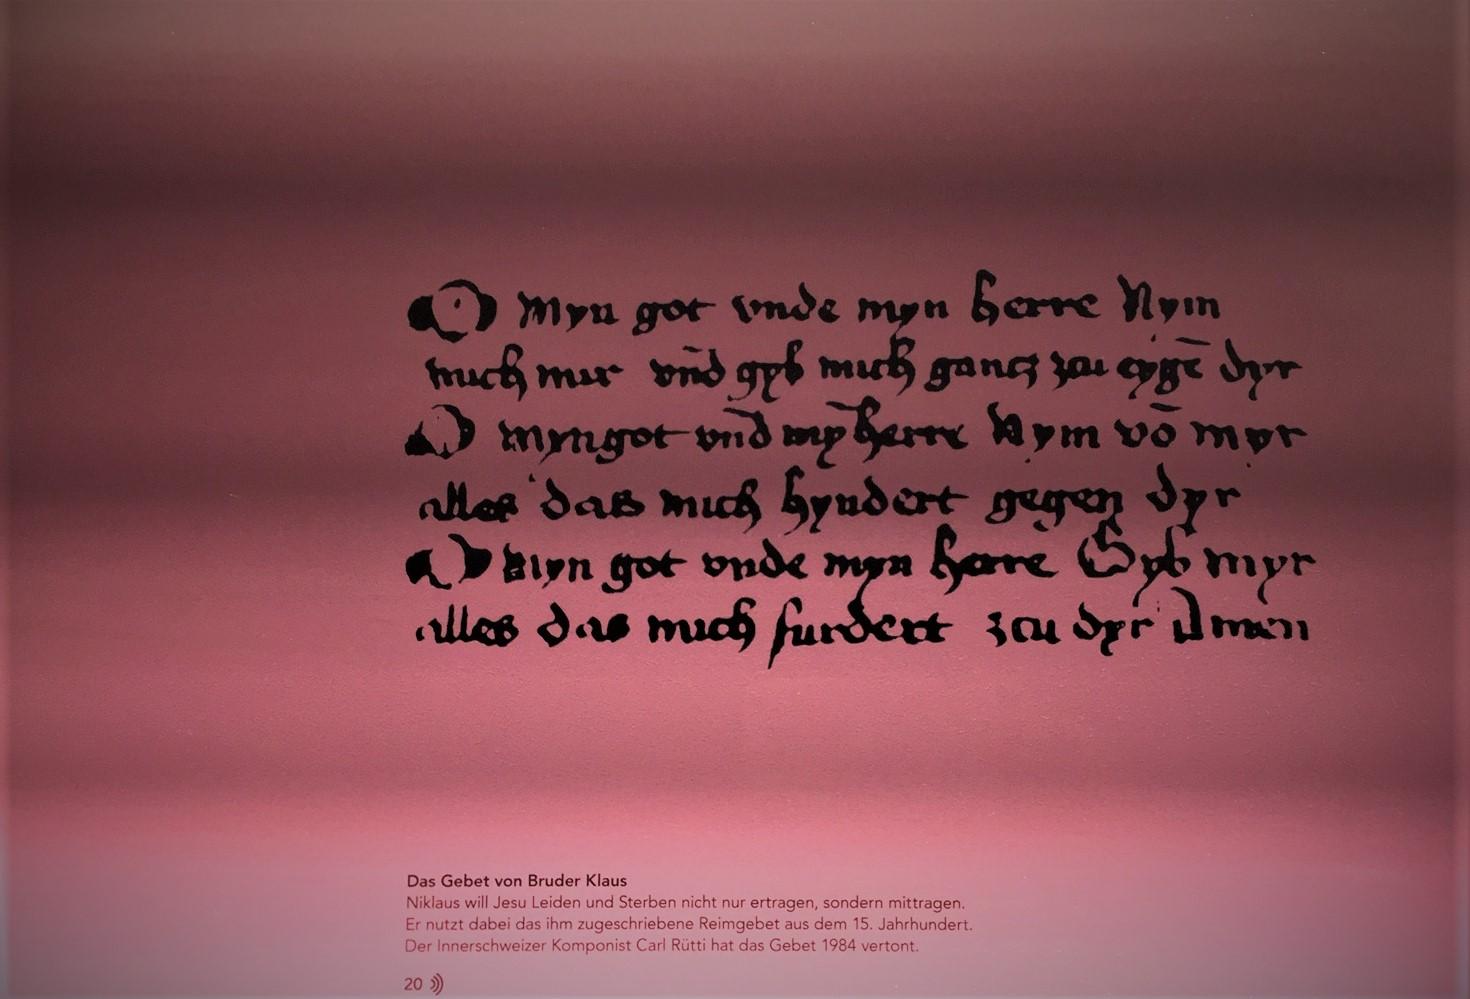 O Myn got vnde myn herre Nym
mich mir vn̄d gyb mich gancz zcu eygē dyr
O myngot vn̄d mȳ herre Nym vō myr
alles das mich hyndert gegen dyr
O Myn got vnde myn herre Gyb myr
alles das mich furdert zcu dyr Amen
Das Gebet von Bruder Klaus
Niklaus will Jesu Leiden und Sterben nicht nur ertragen, sondern mittragen.
Er nutzt dabei das ihm zugeschriebene Reimgebet aus dem 15. Jahrhundert.
Der Innerschweizer Komponist Carl Rütti hat das Gebet 1984 vertont.
20